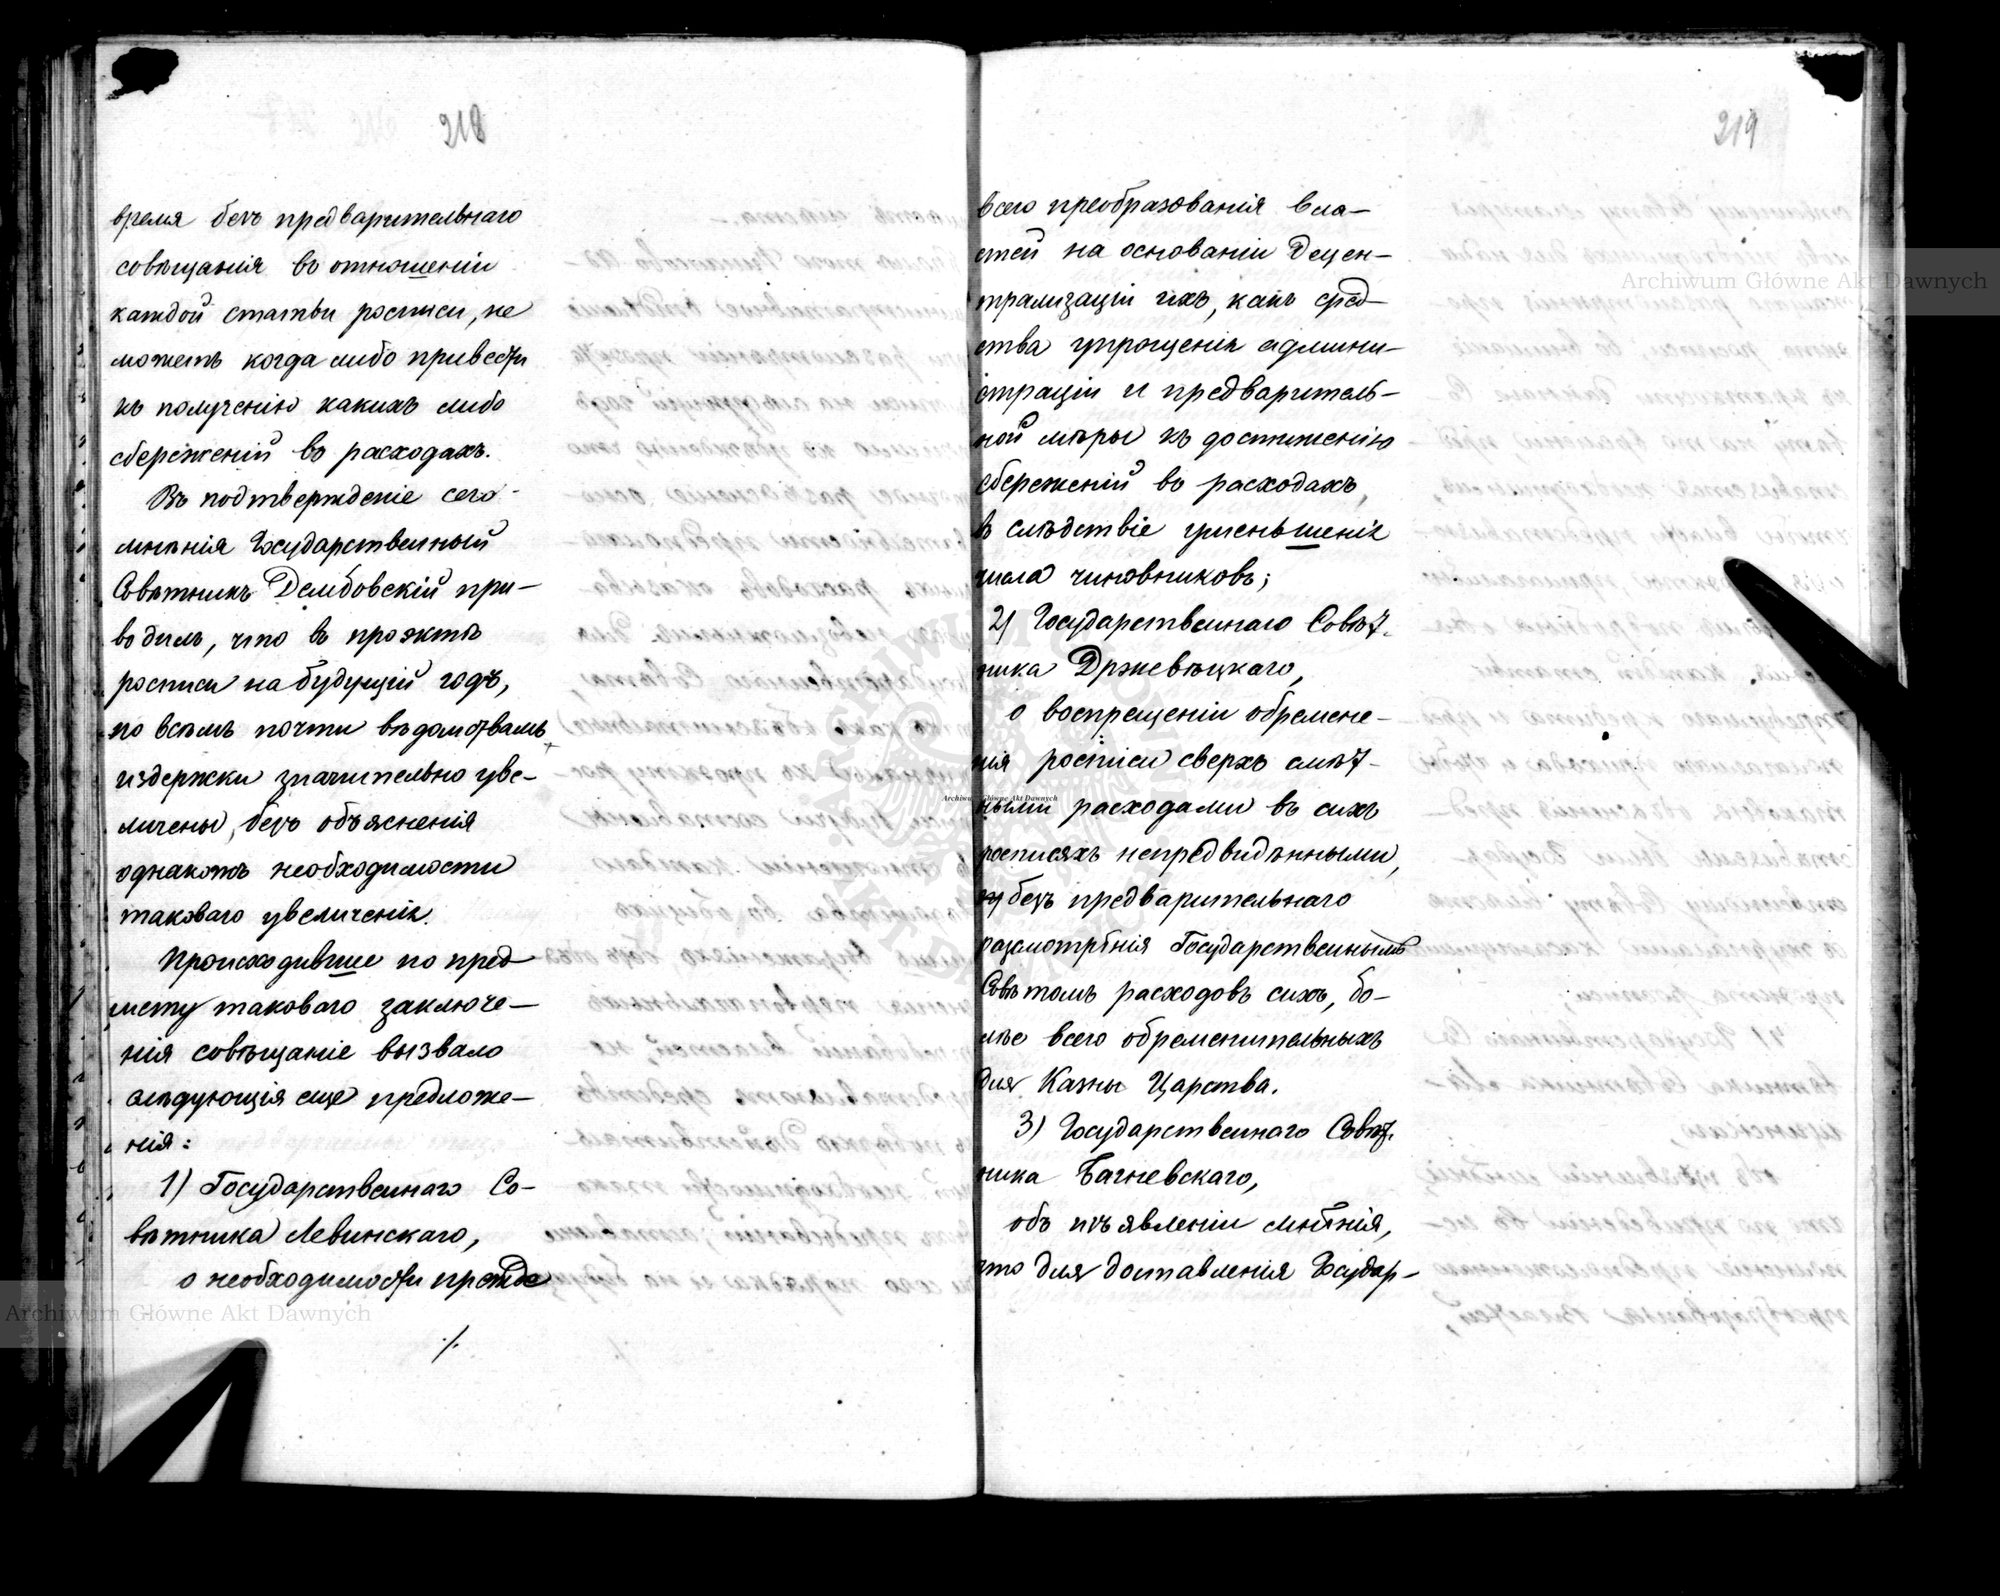 218
время безъ предварительнаго
совѣщанія въ отношеніи
каждой статьи росписи, не
можетъ когда либо привести
къ полученію какихъ либо
сбереженій въ расходахъ.
Въ подтвержденіе сего
мнѣнія Государственный
Совѣтникъ Дембовскій при-
водилъ, что въ проэктѣ
росписи на будущій годъ,
по всѣмъ почти вѣдомствамъ
издержки значительно уве-
личены, безъ объясненія
однакожъ необходимости
таковаго увеличенія.
Происходившее по пред-
мету таковаго заключе-
нія совѣщаніе вызвало
слѣдующія еще предложе-
нія:
1) Государственнаго Со-
вѣтника Левинскаго,
о необходимости прежде
·/.
219
всего преобразованія вла-
стей на основаніи децен-
трализаціи ихъ, какъ сред-
ства упрощенія админи-
страціи и предваритель-
ной мѣры къ достиженію
сбереженій въ расходахъ,
въ слѣдствіе уменьшенія
числа чиновниковъ;
2) Государственнаго Совѣт-
ника Држевѣцкаго,
о воспрещеніи обремене-
нія росписи сверхъ смѣт-
ными расходами въ сихъ
росписяхъ непредвидѣнными,
безъ предварительнаго
разсмотрѣнія Государственнымъ
Совѣтомъ расходовъ сихъ, бо-
лѣе всего обременительныхъ
для Казны Царства.
3) Государственнаго Совѣт-
ника Багневскаго,
объ изъявленіи мнѣнія,
что для доставленія Государ-
Archiwum Główne Akt Dawnych
Archiwum Główne Akt Dawnych
Archiwum Główne Akt Dawnych